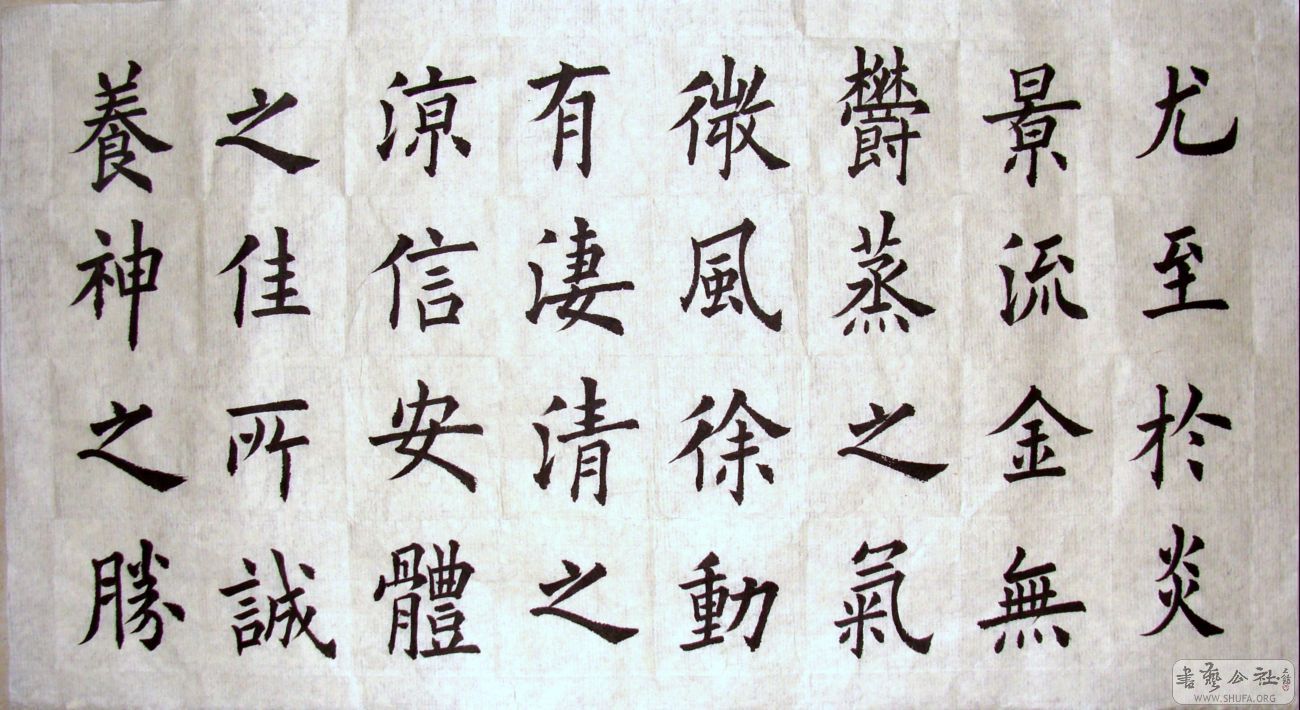 尤至於炎
景流金無
鬱蒸之氣
微風徐動
有淒清之
涼信安體
之佳所誠
養神之勝
书藝公社
WWW.SHUFA.ORG